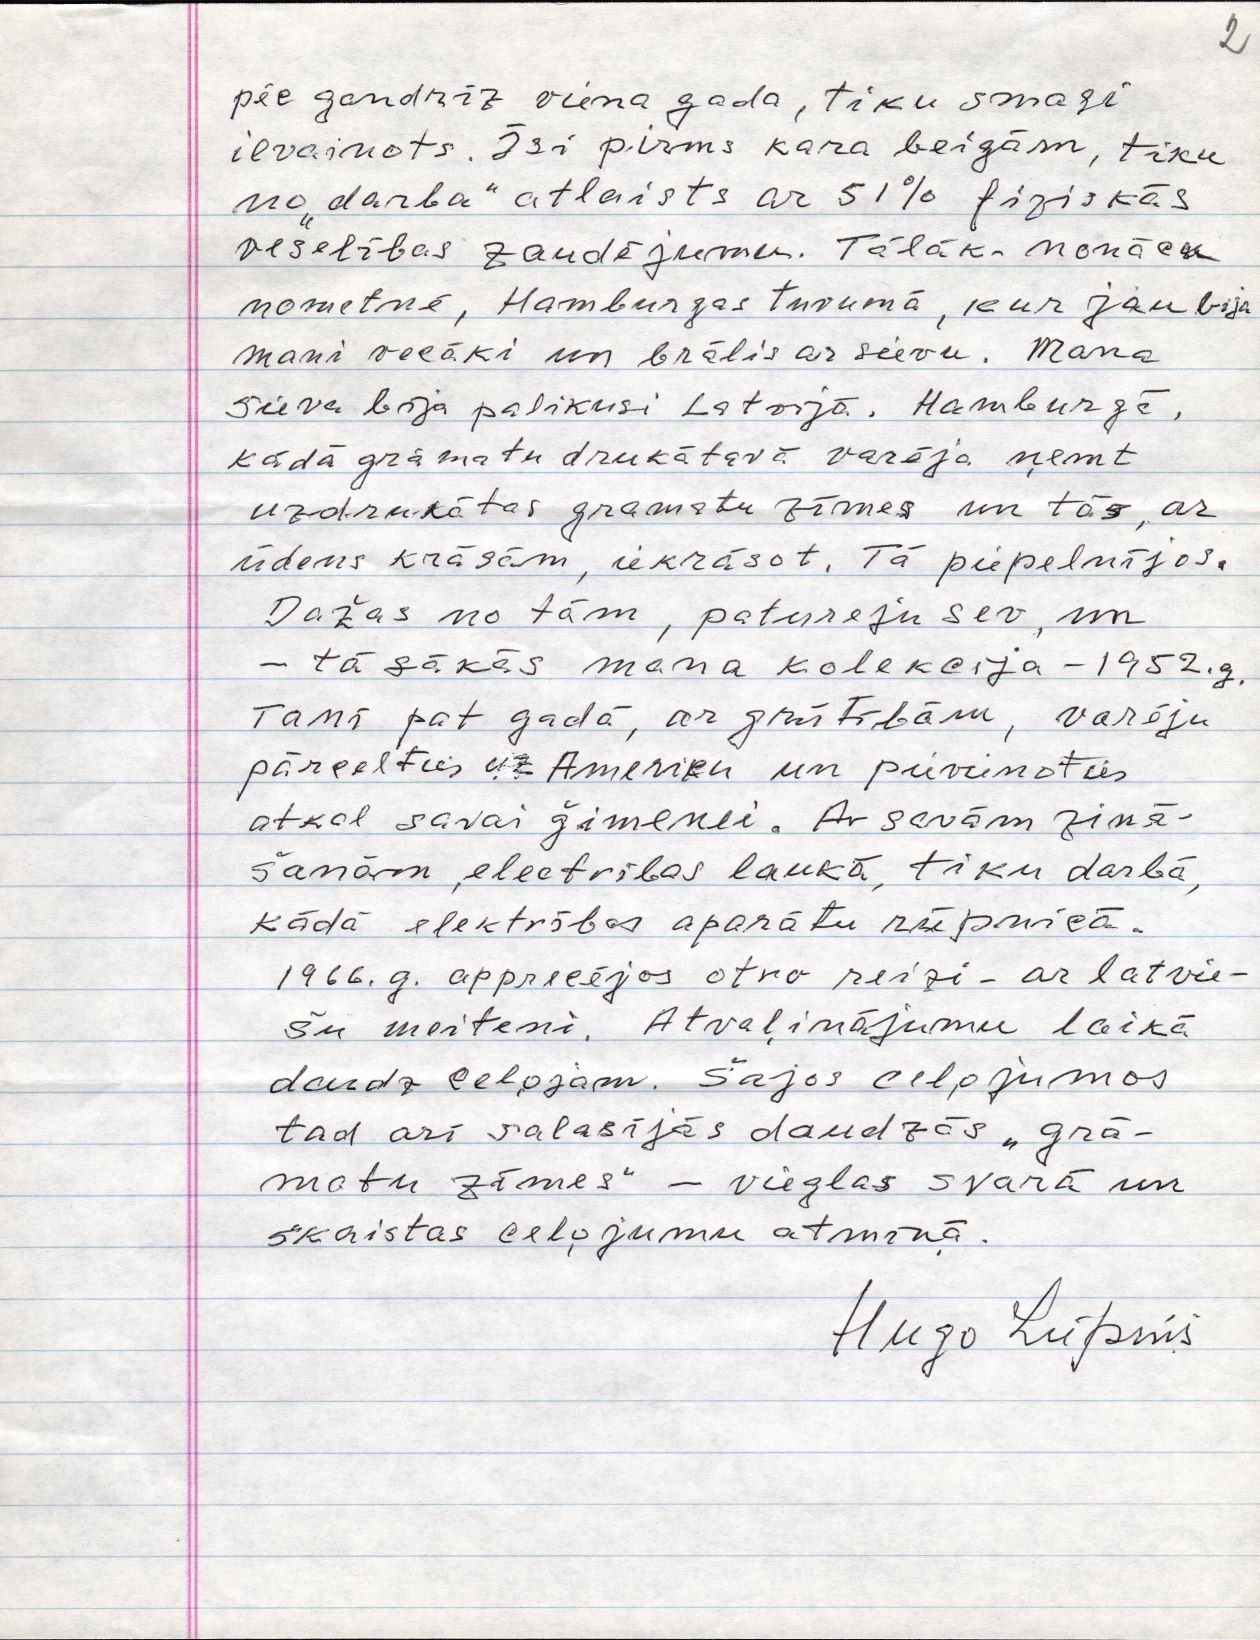 2
pēc gandrīz viena gada, tiku smagi
ievainots. Īsi pirms kara beigām, tiku
no „darba“ atlaists ar 51% fiziskās
veselības zaudējumu. Tālāk. nonācu
nometnē, Hamburgas tuvumā, kur jau bija
mani vecāki un brālis ar sievu. Mana
sieva bija palikusi Latvijā. Hamburgā,
kādā grāmatu drukātavā varēja ņemt
uzdrukātas gramatu zīmes un tās, ar
ūdens krāsām, iekrāsot. Tā piepelnījos.
Dažas no tām, patureju sev, un
– tā sākās mana kolekcija – 1952.g.
Tanī pat gadā, ar grūtībām, varēju
pārcelties uz Ameriku un pievienoties
atkal savai ģimenei. Ar savām zinā-
šanām, electrības laukā, tiku darbā,
kādā elektrības aparātu rūpnicā.
1966.g. apprecējos otro reizi – ar latvie-
šu meiteni. Atvaļinājumu laikā
daudz ceļojām. Šajos ceļojumos
tad arī salasījās daudzās „grā-
matu zīmes“ – vieglas svarā un
skaistas ceļojumu atmiņā.
Hugo